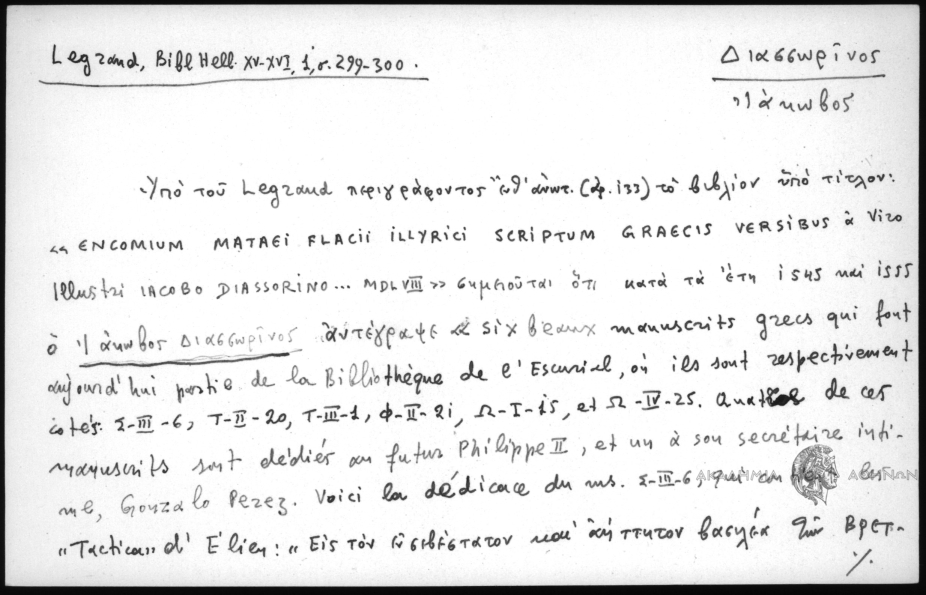 Legrand, Bibl Hell. XV-XVI, 1, σ. 299-300.
Διασσωρῖνος
Ἰάκωβος
Ὑπὸ τοῦ Legrand περιγράφοντος ἔνθ' ἀνωτ. (ἀρ. 133) τὸ βιβλίον ὑπὸ τίτλον:
«ENCOMIUM MATAEI FLACII ILLYRICI SCRIPTUM GRAECIS VERSIBUS à Viro
Illustri IACOBO DIASSORINO... MDLVIII» σημειοῦται ὅτι κατὰ τὰ ἔτη 1545 καὶ 1555
ὁ Ἰάκωβος Διασσωρῖνος ἀντέγραψε «six beaux manuscrits grecs qui font
aujourd'hui partie de la Bibliothèque de l'Escurial, où ils sont respectivement
cotés: Σ-III-6, T-II-20, T-III-1, Φ-II-21, Ω-I-15, et Ω-IV-25. Quatre de ces
manuscrits sont dédiés au futur Philippe II, et un à son secrétaire inti-
me, Gonzalo Perez. Voici la dédicace du ms. Σ-III-6, qui contient les
"Tactica" d'Élien: «Εἰς τὸν εὐσεβέστατον καὶ ἀήττητον βασιλέα τῶν Βρετ-
./.
ΑΚΑΔΗΜΙΑ ΑΘΗΝΩΝ